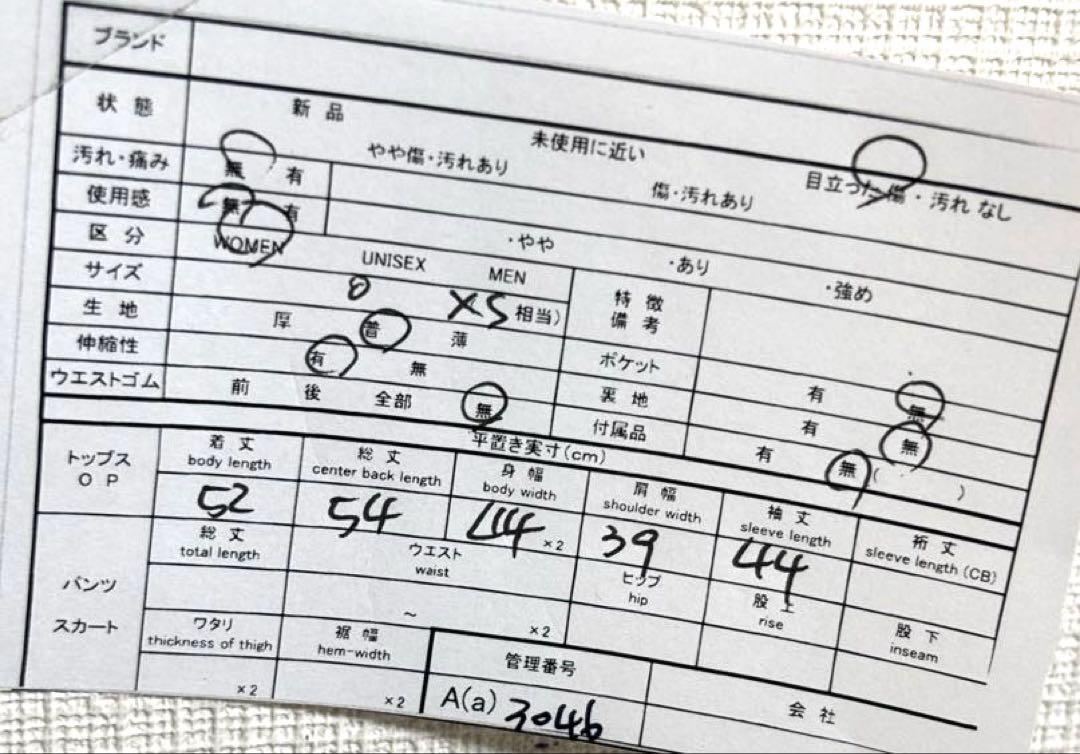 ブランド
状態 新品 未使用に近い 目立った傷・汚れ なし
やや傷・汚れあり 傷・汚れあり
汚れ・痛み 無 有
使用感 無 有 ・やや ・あり ・強め
区分 WOMEN UNISEX MEN
サイズ 0 XS 相当) 特徴 備考
生地 厚 普 薄
伸縮性 有 無 ポケット 有 無
ウエストゴム 前 後 全部 無 裏地 有 無
付属品 有 無 ( )
平置き実寸(cm)
トップス OP
着丈 総丈 身幅 肩幅 袖丈 裄丈
body length center back length body width shoulder width sleeve length sleeve length (CB)
52 54 44 ×2 39 44
パンツ スカート
総丈 ウエスト ヒップ 股上 股下
total length waist hip rise inseam
~ ×2
ワタリ 裾幅 管理番号 会社
thickness of thigh hem-width
×2 ×2 A(a) 3046